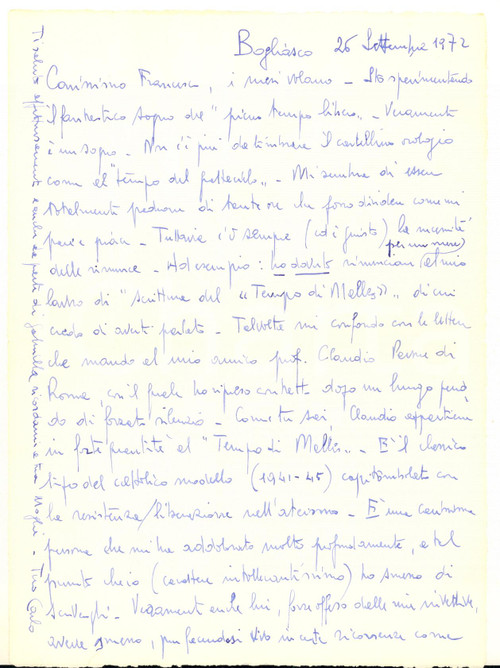 Bogliasco 26 Settembre 1972
Carissimo Francesco, i mesi volano - Sto sperimentando
il fantastico sogno del "pieno tempo libero" - Veramente
è un sogno - Non c'è più da timbrare il cartellino orologio
come al "tempo del" - Mi sembra di essere
totalmente padrone di tante ore che posso dividere come mi
pare e piace - Tuttavia c'è sempre (ed è giusto) la necessità
delle rinunce - Ad esempio: ho dovuto rinunciare (per un mese) al mio
lavoro di "scrittura del «Tempo di Melles»" di cui
credo di averti parlato - Talvolta mi confondo con le lettere
che mando al mio amico prof. Claudio di
Roma, con il quale ho ripreso contatto dopo un lungo perio
do di forzato silenzio - Come tu sai, Claudio appartiene
in forte quantità al "Tempo di Melles" - È il classico
tipo del cattolico modello (1941-45) capitombolato con
la resistenza/liberazione nell'ateismo - È una carissima
persona che mi ha addolorato molto profondamente, a tal
punto che io (carattere intollerantissimo) ho smesso di
scrivergli - Veramente anche lui, forse offeso dalle mie invettive,
aveva smesso, pur facendosi vivo in certe ricorrenze come
Ti saluto affettuosamente anche da parte di Gabriella ricordami a tua moglie - Tuo Carlo